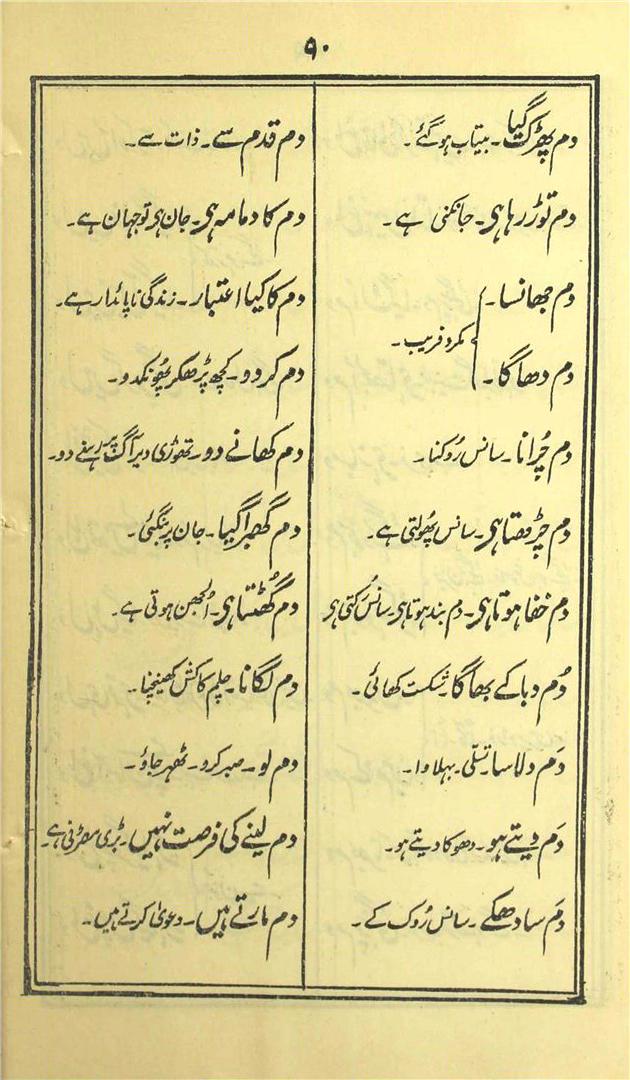 ۹۰
دم پھڑک گیا۔ بیتاب ہو گئے۔
دم توڑ رہا ہی۔ جانکنی ہے۔
دم جھانسا۔
مکر و فریب۔
دم دھاگا۔
دم چُرانا۔ سانس رُوکنا۔
دم چڑھتا ہی۔ سانس پھُولتی ہے۔
دم خفا ہوتا ہی۔ دم بند ہوتا ہی۔ سانس رُکتی ہی
دُم دبا کے بھاگا۔ شکست کھائی۔
دَم دلاسا۔ تسلی۔ بہلاوا۔
دَم دیتے ہو۔ دھوکا دیتے ہو۔
دَم سادھکے۔ سانس رُوک کے۔
دم قدم سے۔ ذات سے۔
دم کا دمامہ ہی۔ جان ہی تو جہان ہے۔
دم کا کیا اعتبار۔ زندگی ناپائدار ہے۔
دم کر دو۔ کچھ پڑھکر پھُونکدو۔
دم کھانے دو۔ تھوڑی دیر آگ پر رہنے دو۔
دم گھبرا گیا۔ جان پر بنگئی۔
دم گھُٹتا ہی۔ اُلجھن ہوتی ہے۔
دم لگانا۔ چلم کا کش کھینچنا۔
دم لو۔ صبر کرو۔ ٹھہر جاؤ۔
دم لینے کی فرصت نہیں۔ بڑی ہے۔
دم مارتے ہیں۔ دعویٰ کرتے ہیں۔